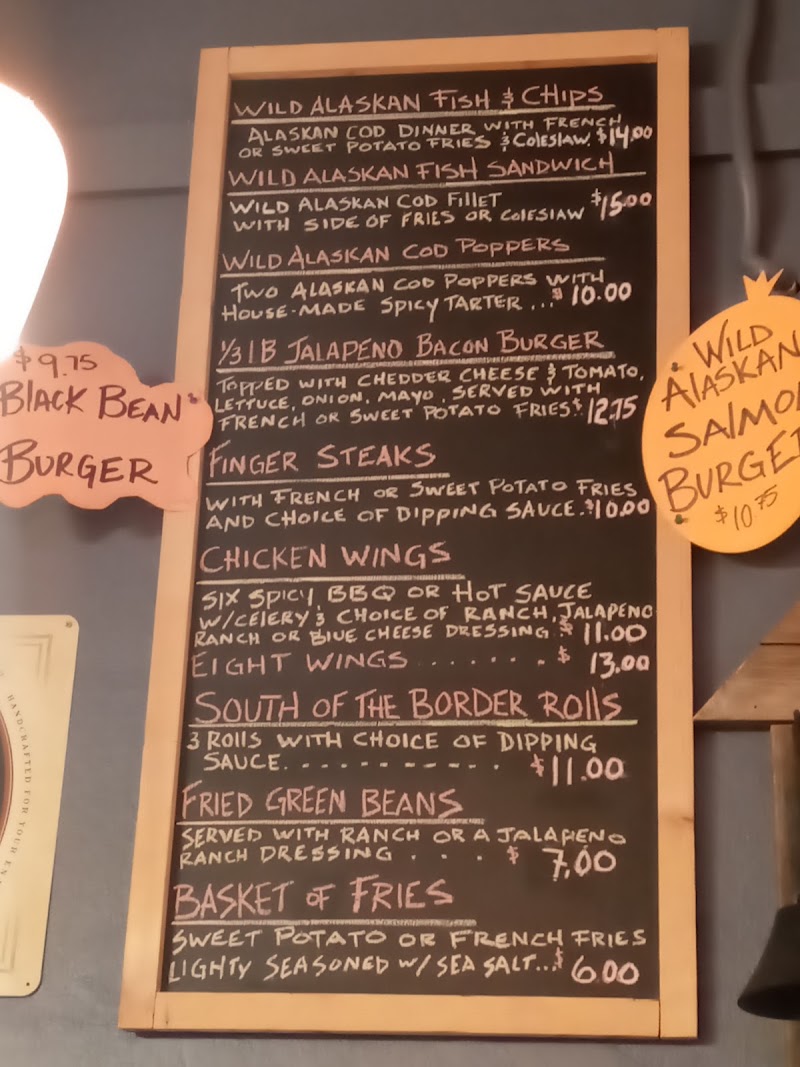 WILD ALASKAN FISH & CHIPS
ALASKAN COD DINNER WITH FRENCH
OR SWEET POTATO FRIES & COLESLAW. $14.00
WILD ALASKAN FISH SANDWICH
WILD ALASKAN COD FILLET
WITH SIDE OF FRIES OR COLESLAW $15.00
WILD ALASKAN COD POPPERS
TWO ALASKAN COD POPPERS WITH
HOUSE-MADE SPICY TARTER ... $10.00
1/3 LB JALAPENO BACON BURGER
TOPPED WITH CHEDDER CHEESE & TOMATO,
LETTUCE, ONION, MAYO, SERVED WITH
FRENCH OR SWEET POTATO FRIES $12.75
FINGER STEAKS
WITH FRENCH OR SWEET POTATO FRIES
AND CHOICE OF DIPPING SAUCE. $10.00
CHICKEN WINGS
SIX SPICY, BBQ OR HOT SAUCE
W/CELERY & CHOICE OF RANCH, JALAPENO
RANCH OR BLUE CHEESE DRESSING . $11.00
EIGHT WINGS ....... $ 13.00
SOUTH OF THE BORDER ROLLS
3 ROLLS WITH CHOICE OF DIPPING
SAUCE. . . . . . . . . . . $11.00
FRIED GREEN BEANS
SERVED WITH RANCH OR A JALAPENO
RANCH DRESSING . . . . $ 7.00
BASKET OF FRIES
SWEET POTATO OR FRENCH FRIES
LIGHTY SEASONED W/ SEA SALT...$ 6.00
$9.75
BLACK BEAN
BURGER
WILD
ALASKAN
SALMON
BURGER
$10.75
HANDCRAFTED FOR YOUR